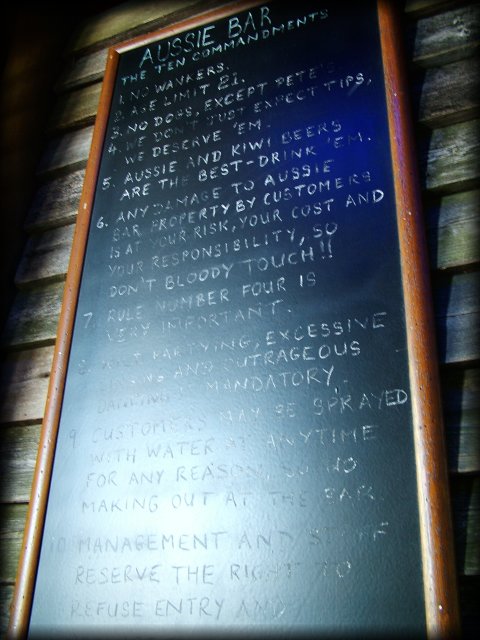 AUSSIE BAR
THE TEN COMMANDMENTS
1. NO WANKERS.
2. AGE LIMIT 21.
3. NO DOGS, EXCEPT PETE'S.
4. WE DON'T JUST EXPECT TIPS,
WE DESERVE 'EM.
5. AUSSIE AND KIWI BEERS
ARE THE BEST-DRINK 'EM.
6. ANY DAMAGE TO AUSSIE
BAR PROPERTY BY CUSTOMERS
IS AT YOUR RISK, YOUR COST AND
YOUR RESPONSIBILITY, SO
DON'T BLOODY TOUCH!!
7. RULE NUMBER FOUR IS
VERY IMPORTANT.
PARTYING, EXCESSIVE
AND OUTRAGEOUS
DANCING IS MANDATORY.
9. CUSTOMERS MAY BE SPRAYED
WITH WATER AT ANYTIME
FOR ANY REASON, SO NO
MAKING OUT AT THE BAR.
10. MANAGEMENT AND STAFF
RESERVE THE RIGHT TO
REFUSE ENTRY AND